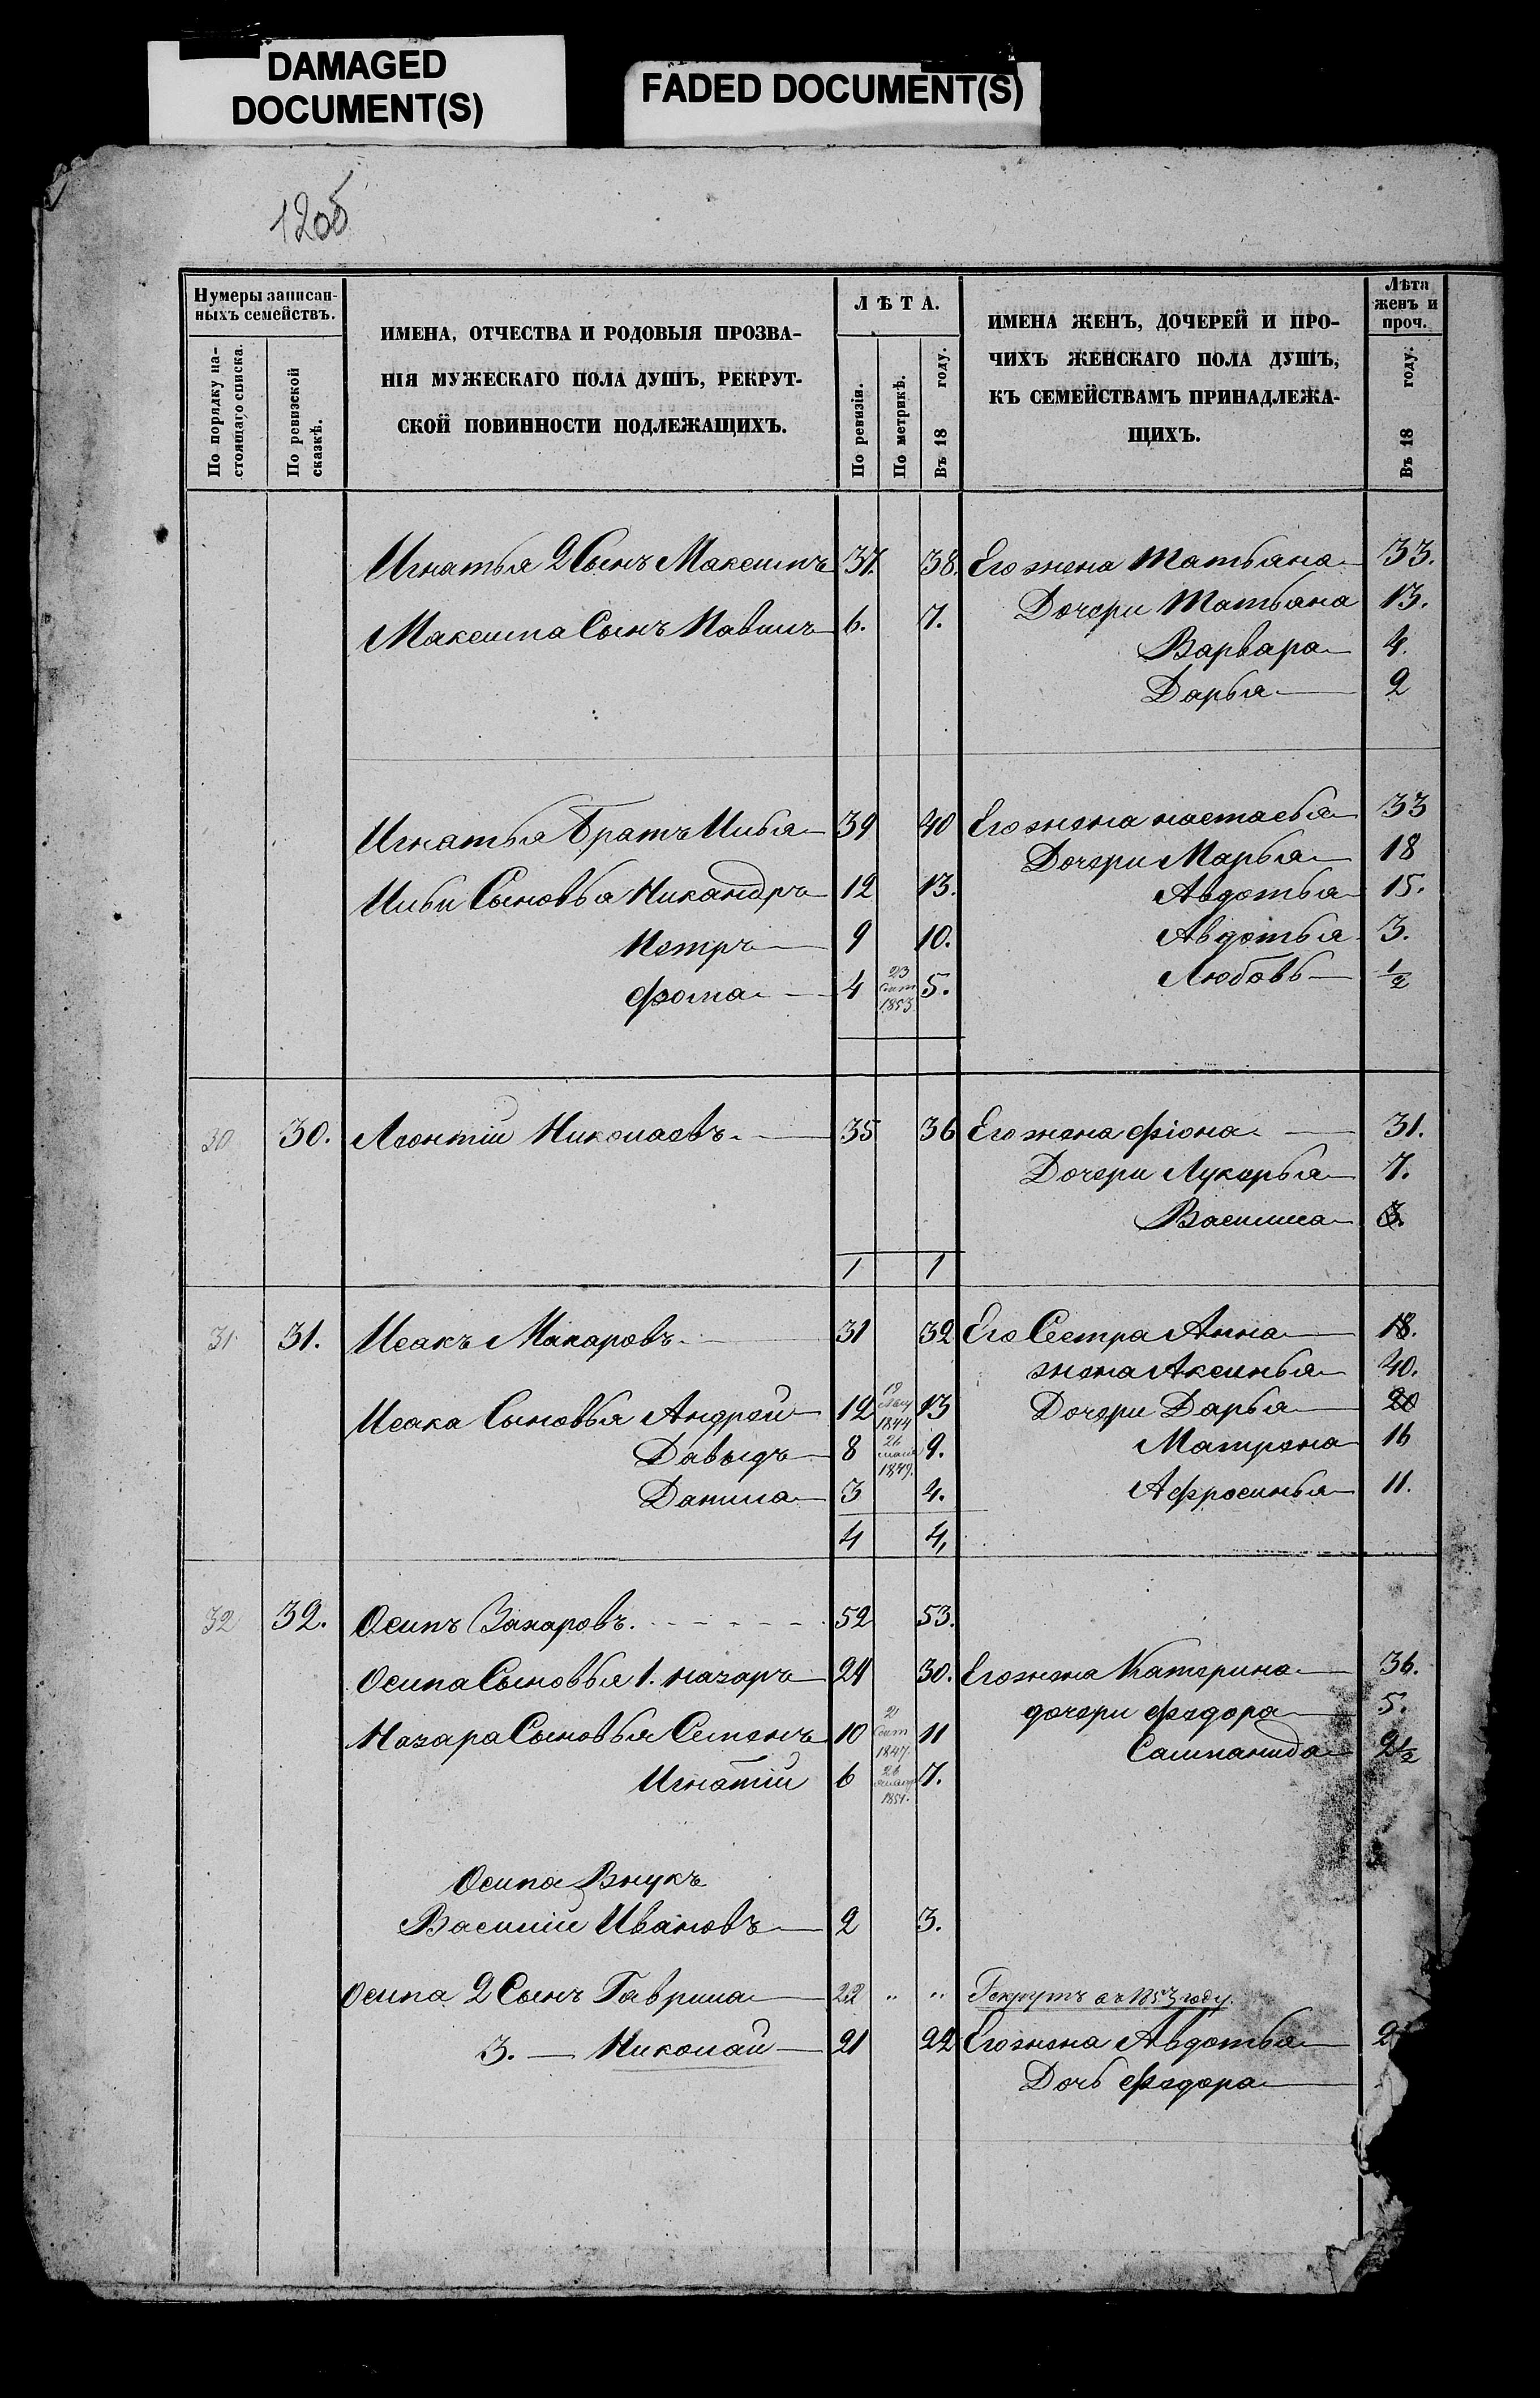 DAMAGED
DOCUMENT(S)
FADED DOCUMENT(S)
1205
Нумеры записан-
ныхъ семействъ.
По порядку на-
стоящаго списка.
По ревизской
сказкѣ.
ИМЕНА, ОТЧЕСТВА И РОДОВЫЯ ПРОЗВА-
НІЯ МУЖЕСКАГО ПОЛА ДУШЪ, РЕКРУТ-
СКОЙ ПОВИННОСТИ ПОДЛЕЖАЩИХЪ.
ЛѢТА.
По ревизіи.
По метрикѣ.
Въ 18 году.
ИМЕНА ЖЕНЪ, ДОЧЕРЕЙ И ПРО-
ЧИХЪ ЖЕНСКАГО ПОЛА ДУШЪ,
КЪ СЕМЕЙСТВАМЪ ПРИНАДЛЕЖА-
ЩИХЪ.
Лѣта
женъ и
проч.
Въ 18 году.
Игнатья 2 Сынъ Максимъ 37. 38. Его жена Татьяна 33.
Дочери Татьяна 13.
Максима Сынъ Павилъ 6. 7.
Варвара 4.
Дарья 2
Игнатья Братъ Илья 39 40 Его жена настасья 33
Дочери Марья 18
Ильи Сыновья Никандръ 12 13. Авдотья 15.
Петръ 9 10. Авдотья 3.
Фома 4 23 Сент 1853 5. Любовь 1/2
30 30. Леонтій Николаевъ. 35 36 Его жена Фіона 31.
Дочери Лукерья 7.
Василиса 3.
1 1
31 31. Исакъ Макаровъ. 31 32 Его Сестра Анна 18.
жена Аксинья 40.
Исака Сыновья Андрей 12 1844 13 Дочери Дарья 20
Давыдъ 8 26 1849. 9. Матрена 16
Данила 3 4. Афросинья 11.
4 4,
32 32. Осипъ Захаровъ. 52 53.
Осипа Сыновья 1. назаръ 24 30. Его жена Катерина 36.
дочери Федора 5.
Назара Сыновья Семенъ 10 2 Сент 1847. 11 Сампанида 2 1/2
Игнатій 6 26 1851. 7.
Осипа Внукъ
Василій Ивановъ 2 3.
Осипа 2 Сынъ Гаврила 22 „ „ Рекрутъ въ 1853 году.
3. — Николай 21 22 Его жена Авдотья 2
Дочь Федора